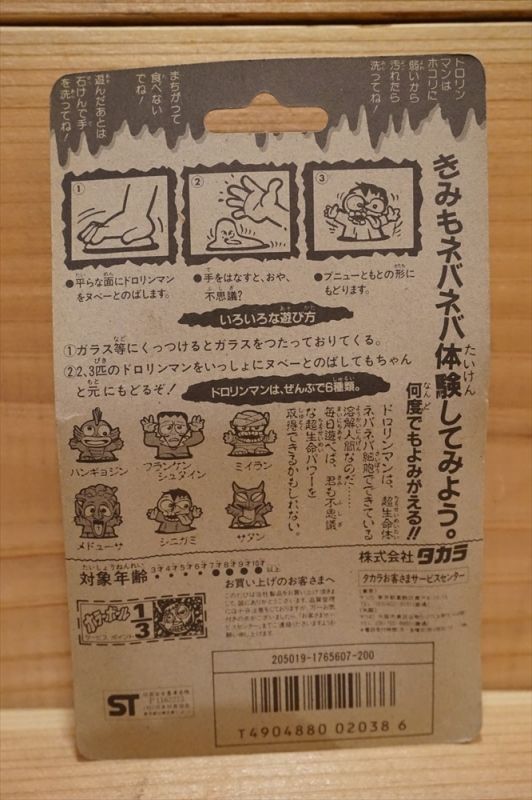 ドロリン
マンは
ホコリに
弱いから
汚れたら
洗ってね!
まちがって
食べない
でね!
遊んだあとは
石けんで手
を洗ってね!
きみもネバネバ体験してみよう。
何度でもよみがえる!!
①
②
③
●平らな面にドロリンマン
をヌペーとのばします。
●手をはなすと、おや、
不思議?
●プニューともとの形に
もどります。
いろいろな遊び方
①ガラス等にくっつけるとガラスをつたっておりてくる。
②2、3匹のドロリンマンをいっしょにヌペーとのばしてもちゃん
と元にもどるぞ!
ドロリンマンは、ぜんぶで6種類。
ハンギョジン
フランケン
シュタイン
ミイラン
メドューサ
シニガミ
サタン
ドロリンマンは、超生命体
ネバネバ細胞でできている
溶解人間なのだ……
毎日遊べば、君も不思議
な超生命パワーを
取得できるかもしれない。
対象年齢 3才4才5才6才7才8才9才10才以上
株式会社 タカラ
お買い上げのお客さまへ
タカラお客さまサービスセンター
サービスポイント
1/3
ST
205019-1765607-200
T4904880 02038 6